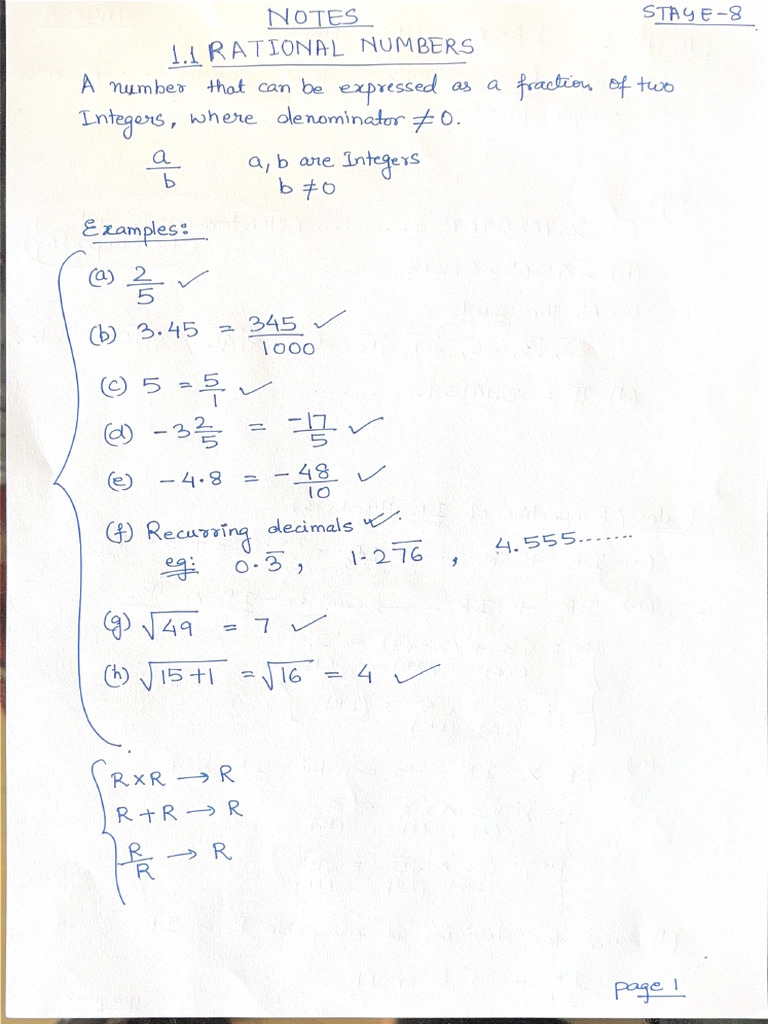 NOTES
STAGE-8
1.1 RATIONAL NUMBERS
A number that can be expressed as a fraction of two
Integers, where denominator ≠ 0.
a/b a, b are Integers
b ≠ 0
Examples:
(a) 2/5 ✓
(b) 3.45 = 345/1000 ✓
(c) 5 = 5/1 ✓
(d) -3 2/5 = -17/5 ✓
(e) -4.8 = -48/10 ✓
(f) Recurring decimals ✓.
eg: 0.3̅, 1.27̅6̅, 4.555.......
(g) √49 = 7 ✓
(h) √15+1 = √16 = 4 ✓
R×R → R
R+R → R
R/R → R
page 1